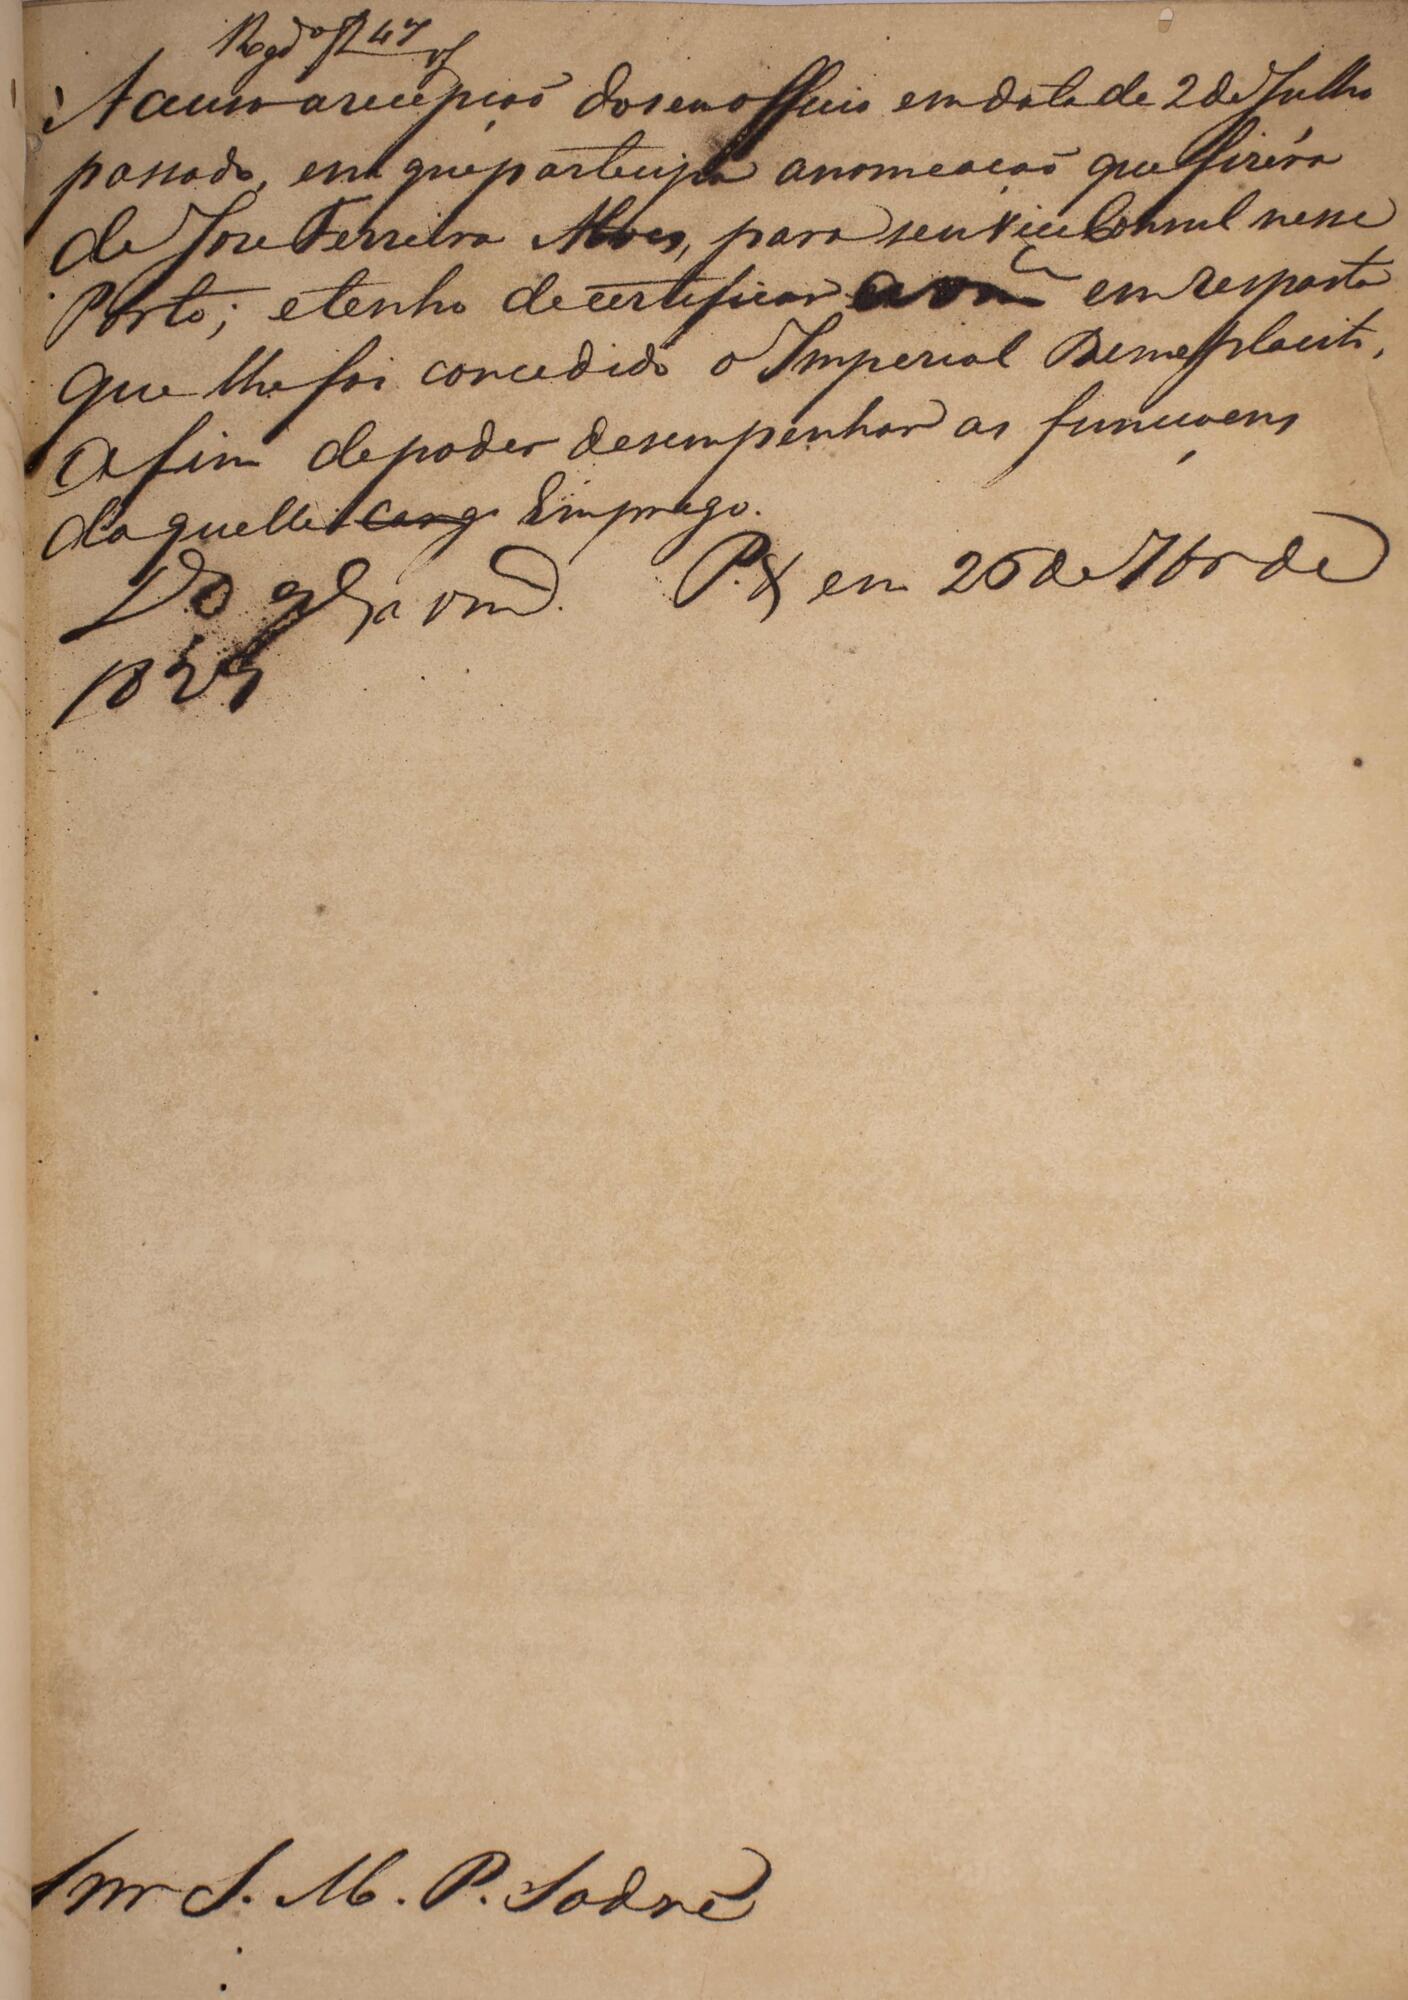 Regdo f 47 v
Accuso a recepçaõ do seu officio em data de 2 de Julho
passado, em que participa a nomeaçaõ que fizéra
de Jose Ferreira Alves, para seu Vice Consul nesse
Porto; e tenho de certificar a vm em resposta
que lhe foi concedido o Imperial Beneplacito,
a fim de poder desempenhar as funcçoens
daquelle cargo Emprego.
Ds gde a vmd. P. em 26 de 7bro de
1825
Snr J. M. P. Sodré